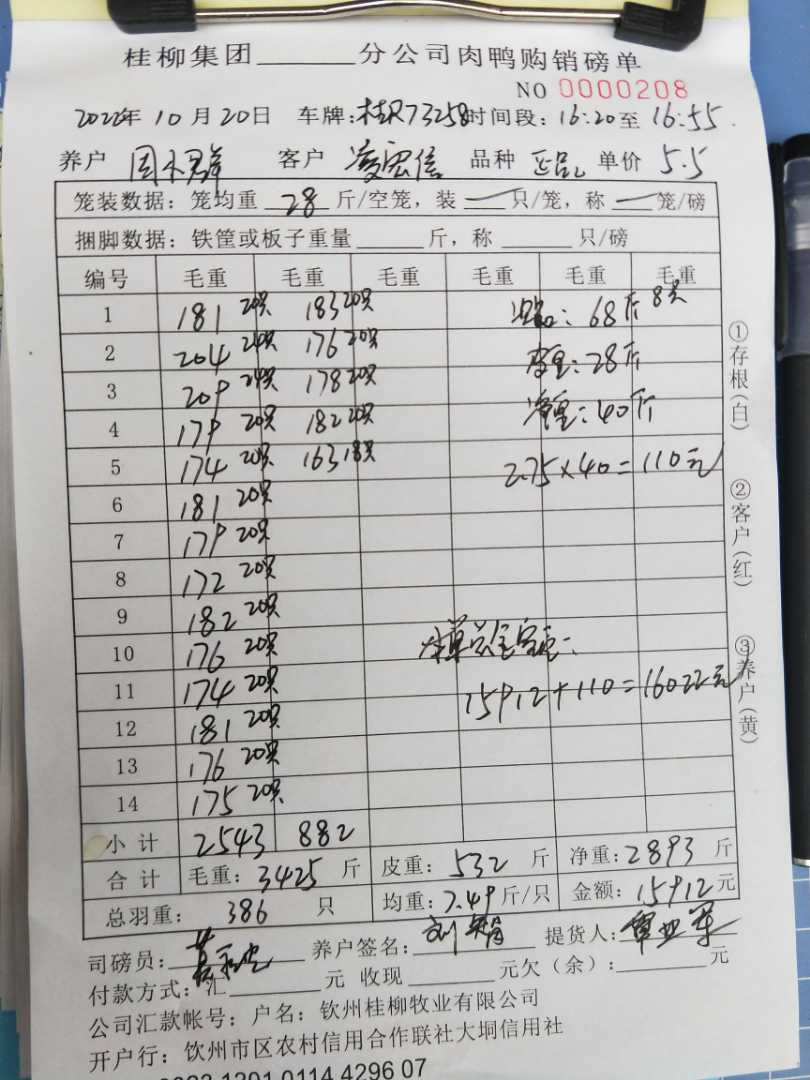 桂柳集团______分公司肉鸭购销磅单
NO 0000208
2022年10月20日 车牌:桂R73258时间段:16:20至16:55
养户 客户 凌宏信 品种 正品 单价 5.5
笼装数据:笼均重 28 斤/空笼,装 一 只/笼,称 一 笼/磅
捆脚数据:铁筐或板子重量______斤,称______只/磅
编号 毛重 毛重 毛重 毛重 毛重 毛重
1 181 20只 183 20只 次品:68斤 8只
2 204 24只 176 20只 皮重:28斤
3 209 24只 178 20只 净重:40斤
4 179 20只 182 20只
5 174 20只 163 18只 2.75×40=110元
6 181 20只
7 179 20只
8 172 20只
9 182 20只
10 176 20只 本单总金额:
11 174 20只 15912+110=16022元
12 181 20只
13 176 20只
14 175 20只
小计 2543 882
合计 毛重:3425斤 皮重:532斤 净重:2893斤
总羽重:386只 均重:7.49斤/只 金额:15912元
司磅员: 养户签名: 提货人:
付款方式:汇______元 收现______元欠(余):______元
公司汇款帐号:户名:钦州桂柳牧业有限公司
开户行:钦州市区农村信用合作联社大垌信用社
0114 4296 07
①存根(白)
②客户(红)
③养户(黄)